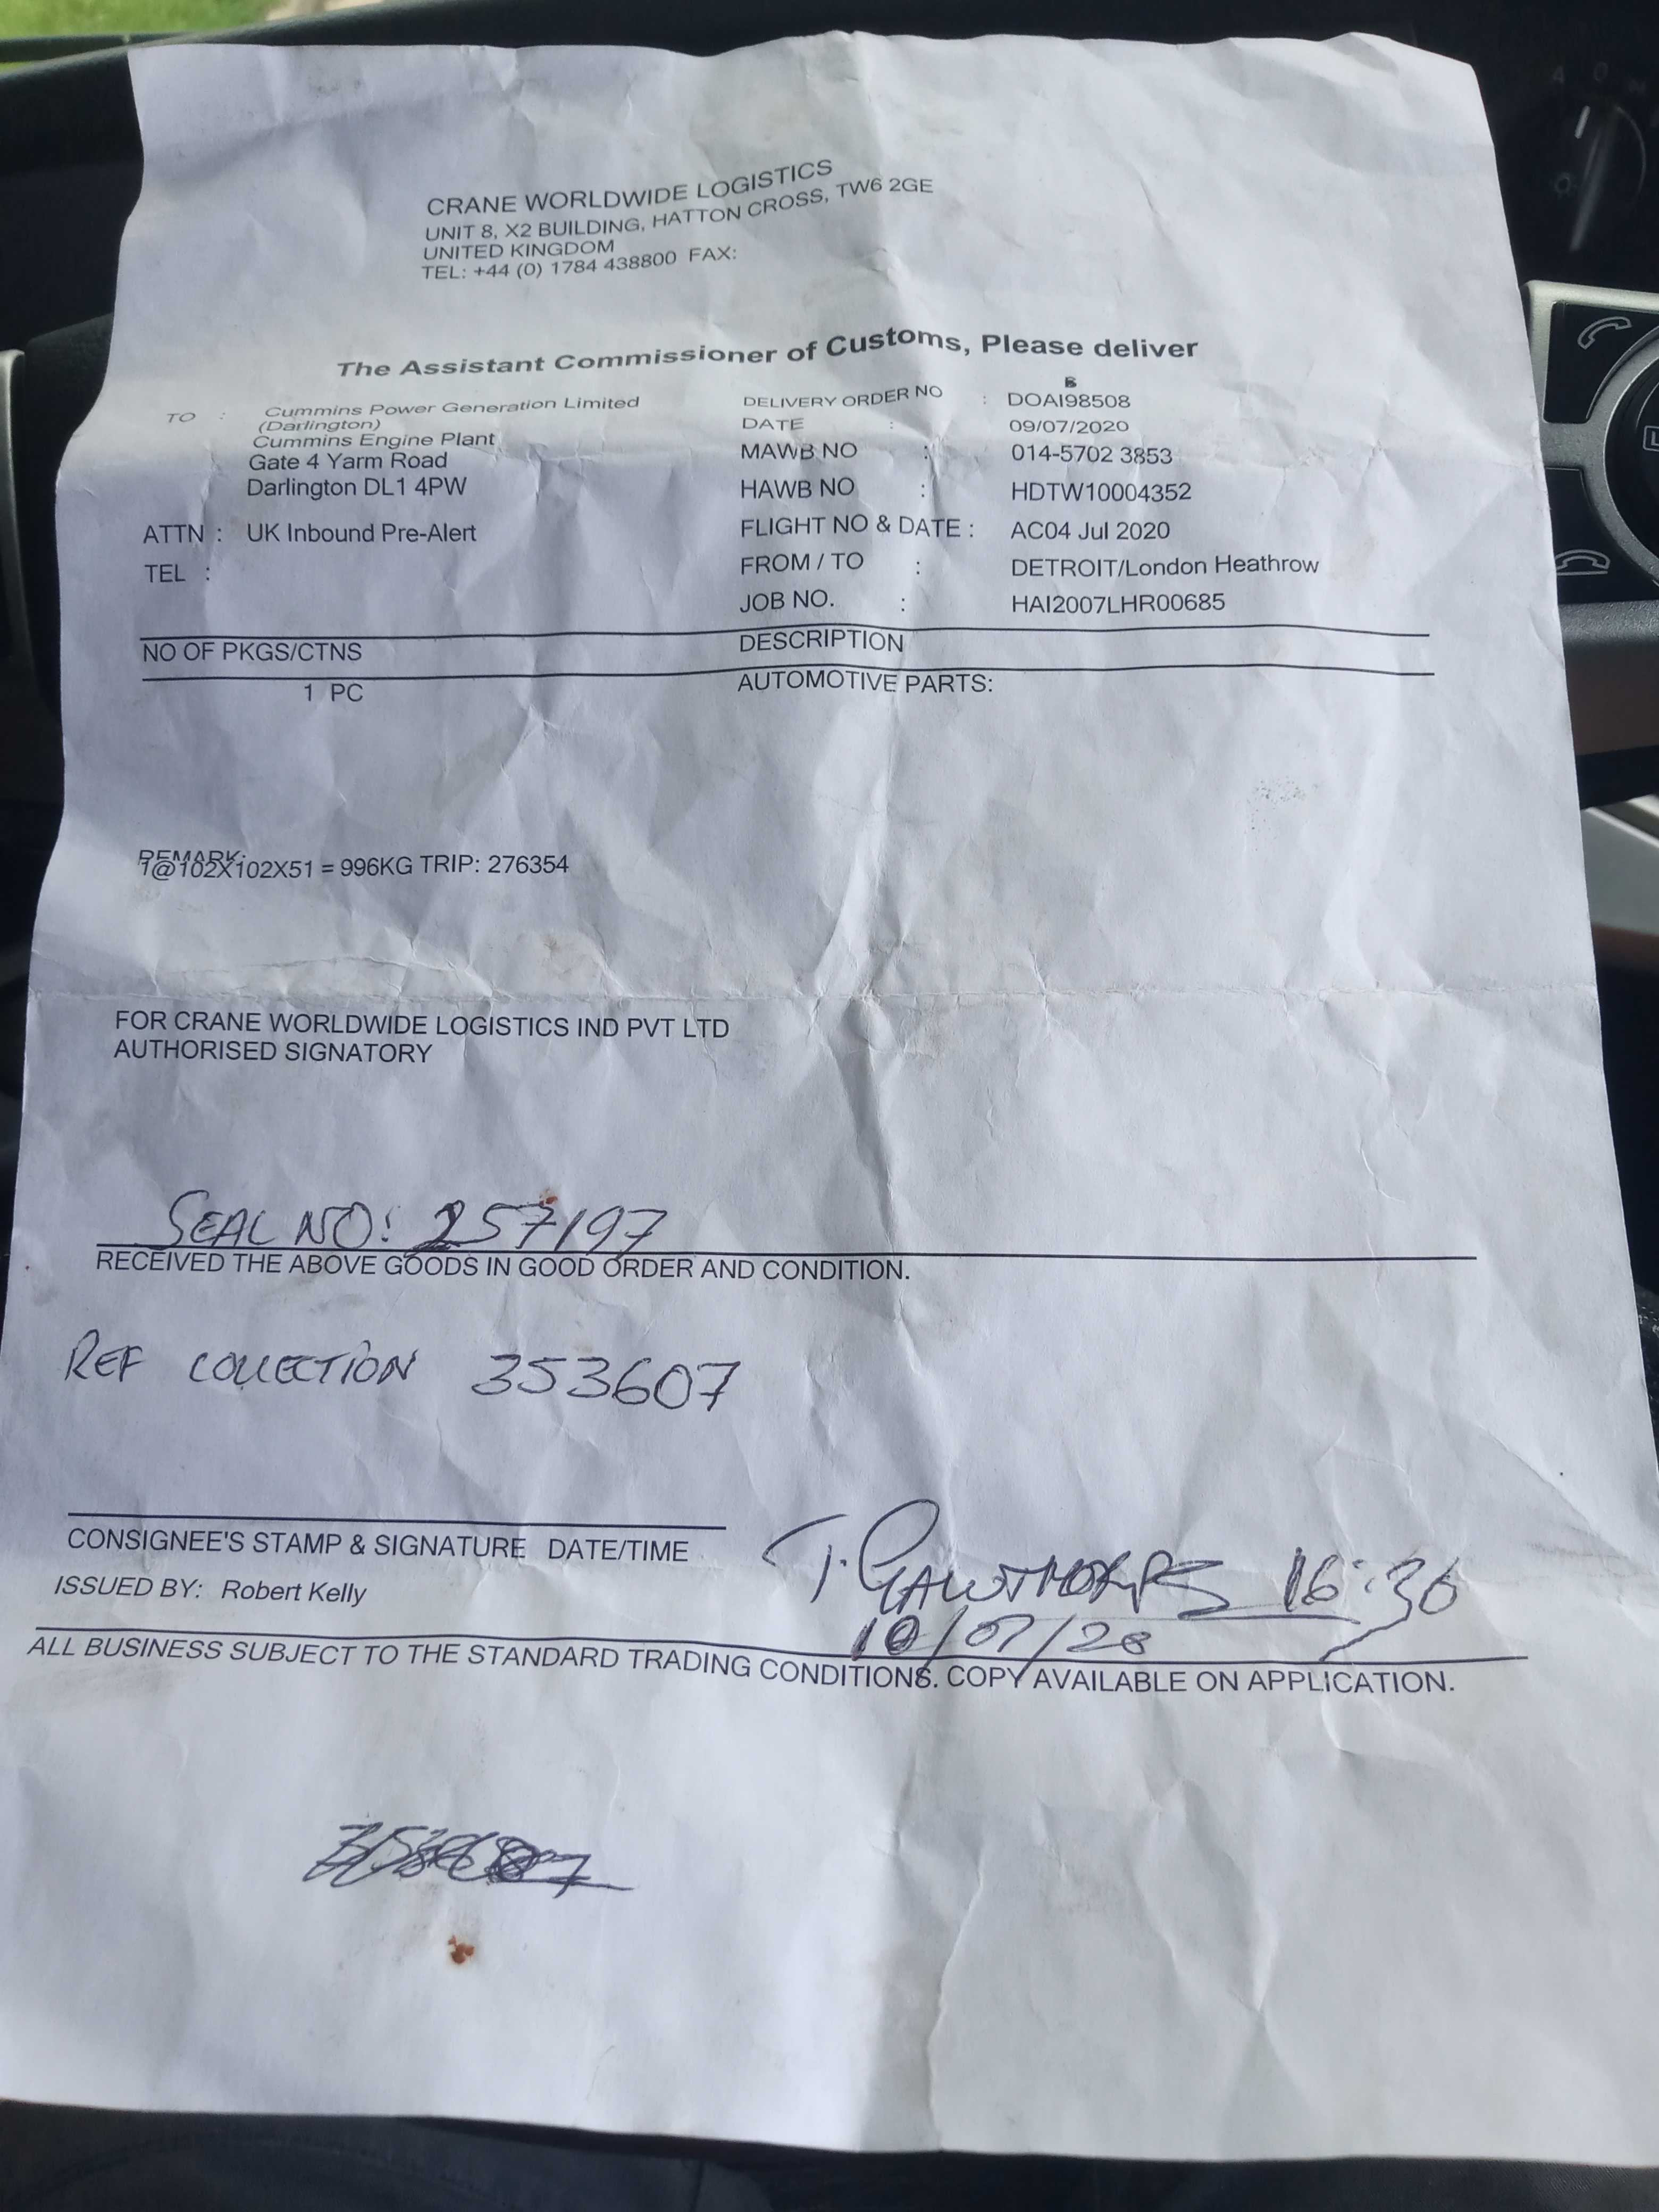 CRANE WORLDWIDE LOGISTICS
UNIT 8, X2 BUILDING, HATTON CROSS, TW6 2GE
UNITED KINGDOM
TEL: +44 (0) 1784 438800 FAX:
The Assistant Commissioner of Customs, Please deliver
TO : Cummins Power Generation Limited
(Darlington)
Cummins Engine Plant
Gate 4 Yarm Road
Darlington DL1 4PW
ATTN : UK Inbound Pre-Alert
TEL :
B
DELIVERY ORDER NO : DOAI98508
DATE : 09/07/2020
MAWB NO : 014-5702 3853
HAWB NO : HDTW10004352
FLIGHT NO & DATE : AC04 Jul 2020
FROM / TO : DETROIT/London Heathrow
JOB NO. : HAI2007LHR00685
NO OF PKGS/CTNS DESCRIPTION
1 PC AUTOMOTIVE PARTS:
REMARK:
1@102X102X51 = 996KG TRIP: 276354
FOR CRANE WORLDWIDE LOGISTICS IND PVT LTD
AUTHORISED SIGNATORY
SEAL NO: 257197
RECEIVED THE ABOVE GOODS IN GOOD ORDER AND CONDITION.
REF COLLECTION 353607
CONSIGNEE'S STAMP & SIGNATURE DATE/TIME
T. GAWTHORPE 16:30
ISSUED BY: Robert Kelly
10/07/20
ALL BUSINESS SUBJECT TO THE STANDARD TRADING CONDITIONS. COPY AVAILABLE ON APPLICATION.